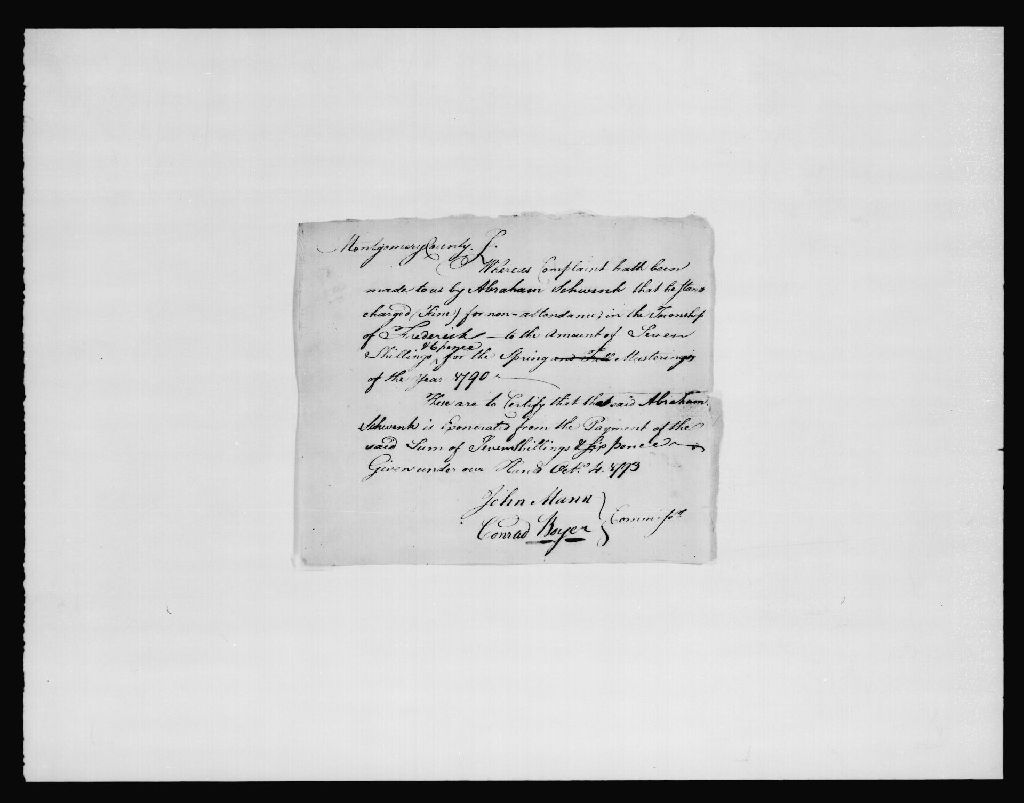 Montgomery County. ss.
Whereas Complaint hath been
made to us by Abraham Schwenk that he stand
charged (Fine) for non-attendance in the Township
of Frederick to the Amount of Seven
& 6 pence
Shillings for the Spring and Fall Musterings
of the year 1790
These are to Certify that the said Abraham
Schwenk is Exonerated from the Payment of the
said Sum of Seven Shillings & six pence
Given under our Hand Oct. 4. 1793
John Mann
Conrad Boyer
Commissrs